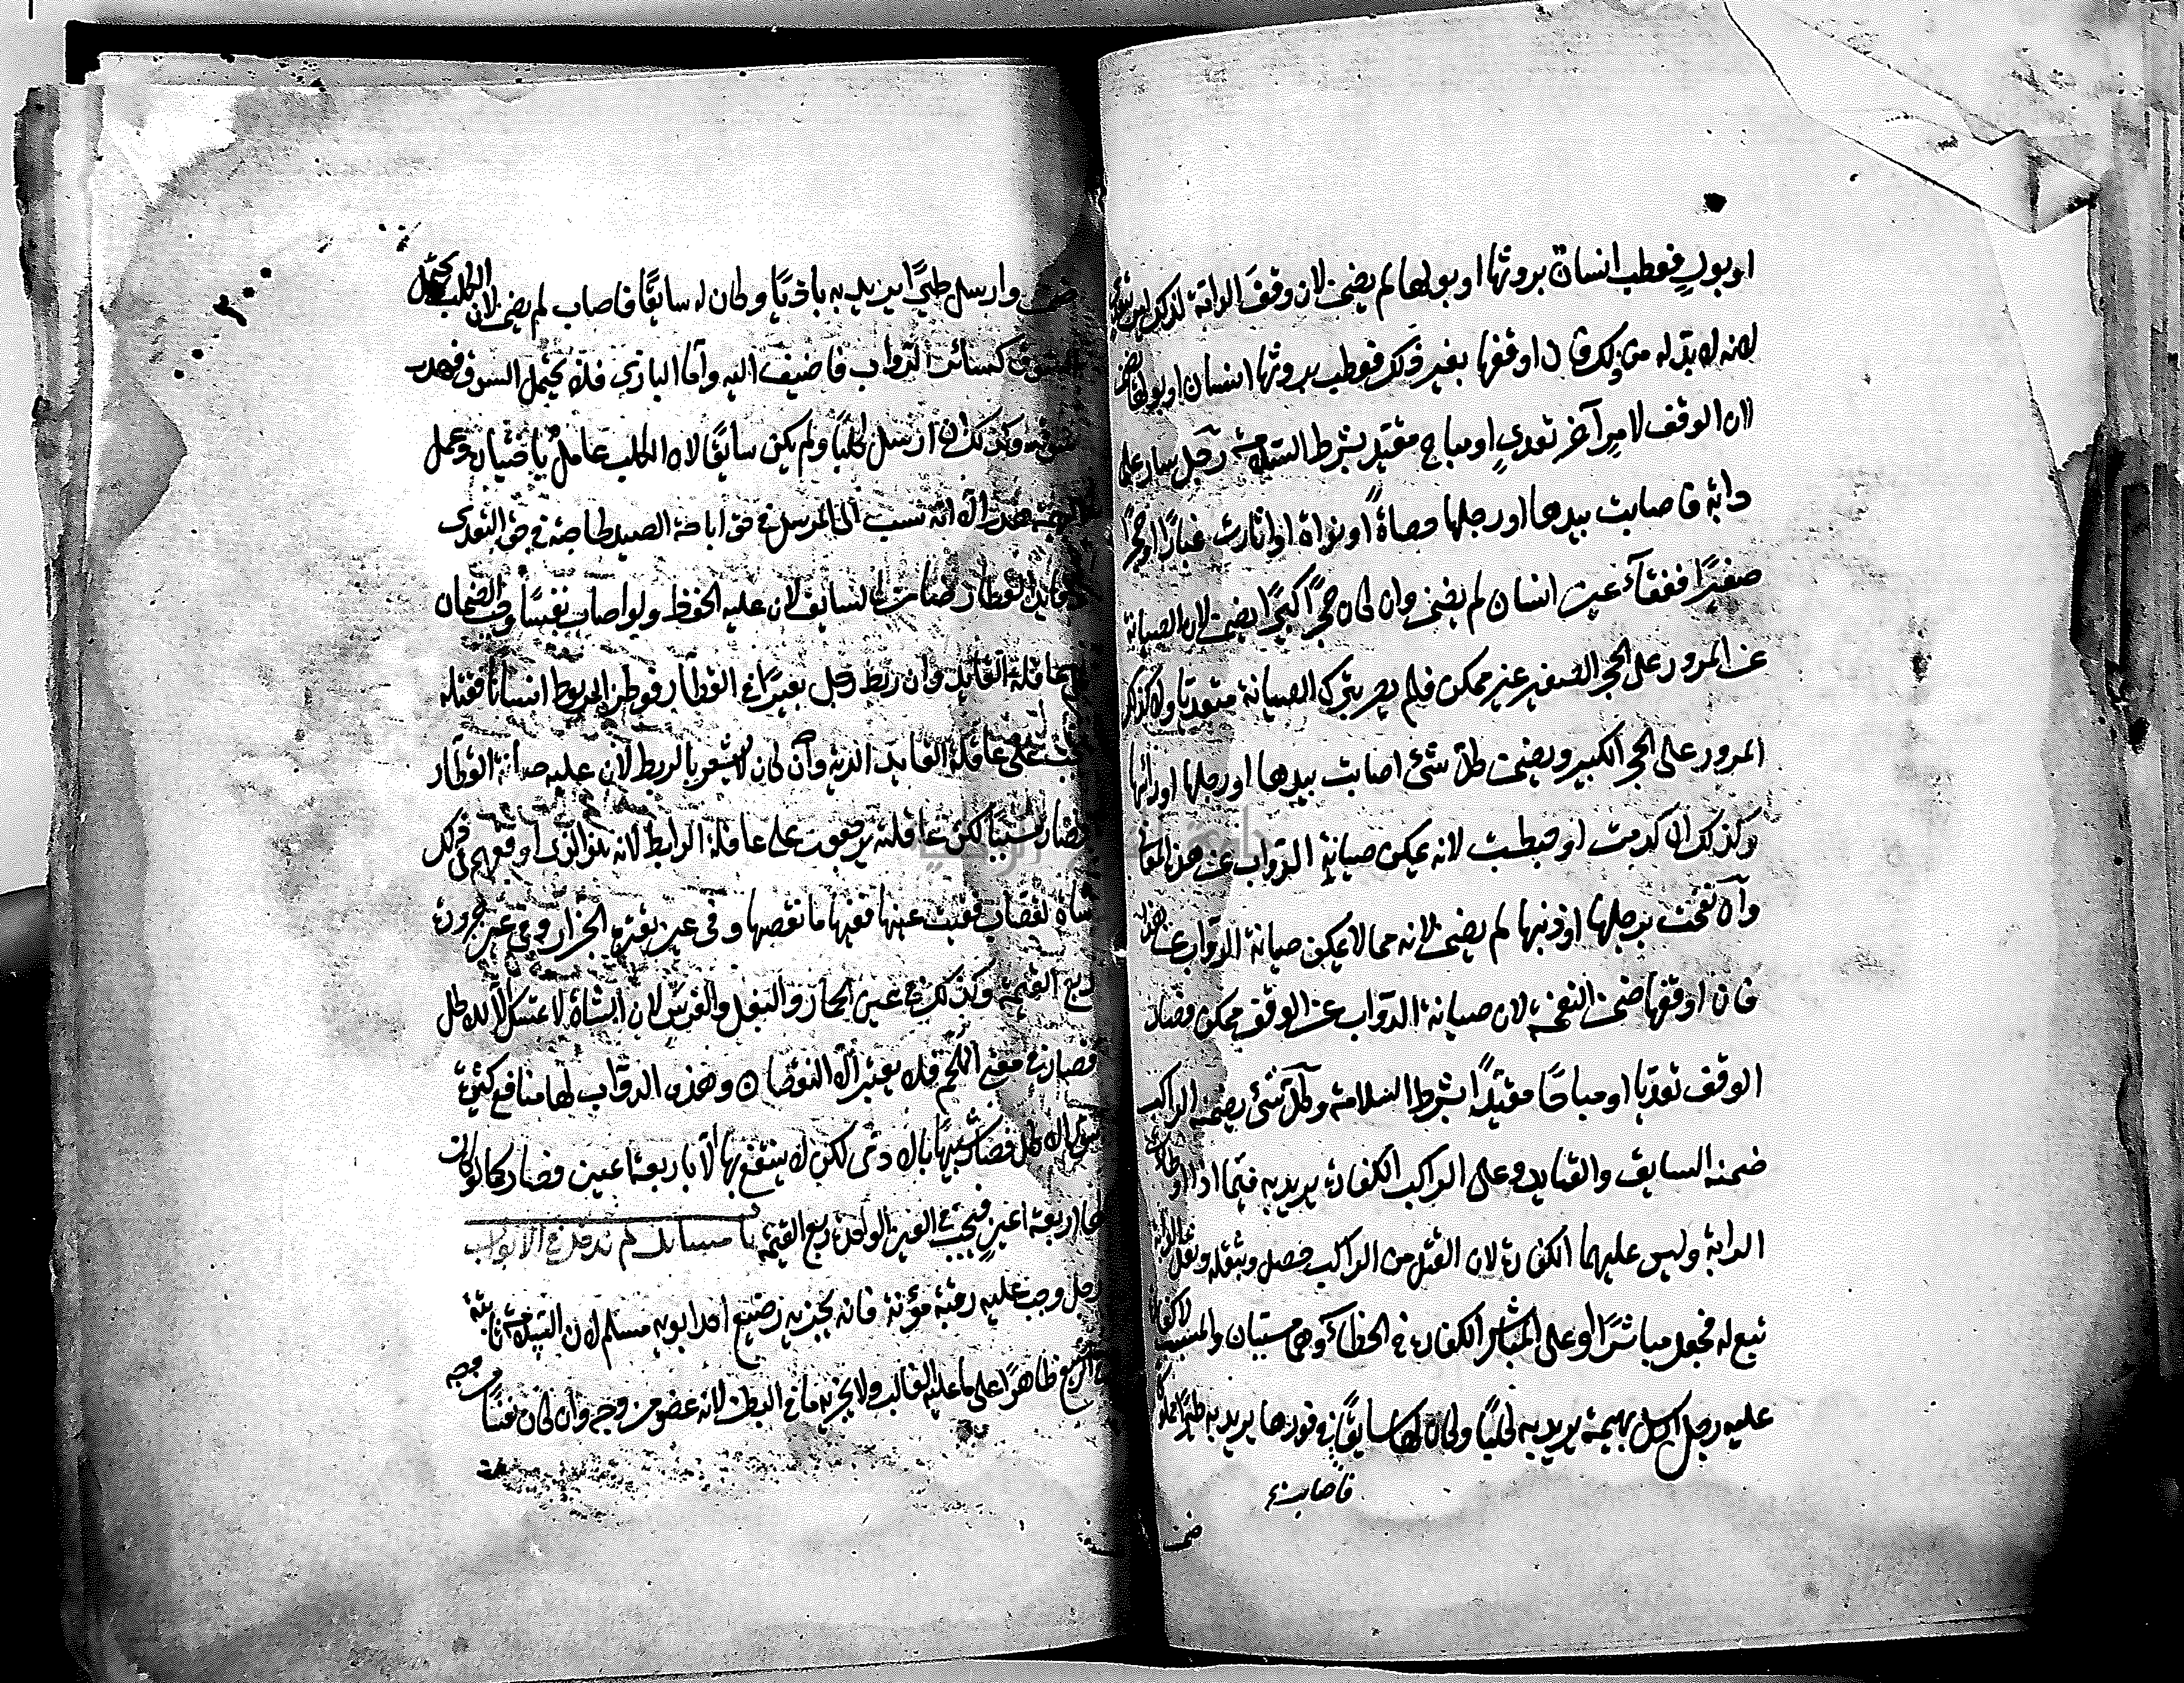 او بول فعطب انسان بروثها او بولها لم يضمن لان وقف الدابة لذلك ليس بتعدي
لانه لا بد له من ذلك فان اوقفها بغير ذلك فعطب بروثها انسان او بولها ضمن
لان الوقف لامر آخر تعدي او مباح مقيد بشرط السلامة رجل سار على
دابة فاصابت بيدها او رجلها حصاة او نواة او اثارت غبارا او حجرا
صغيرا ففقأ عين انسان لم يضمن وان كان حجرا كبيرا يضمن لان الصيانة
عن المرور على الحجر الصغير غير ممكن فلم يصر بترك الصيانة متعديا ولا كذلك
المرور على الحجر الكبير ويضمن كل شئ اصابت بيدها او رجلها او رأسها
وكذلك ان كدمت او خبطت لانه يمكن صيانة الدواب عن هذا المعاني
وان نفحت برجلها او ذنبها لم يضمن لانه مما لا يمكن صيانة الدواب عنه
فان اوقفها ضمن النفحة لان صيانة الدواب عن الوقف ممكن فصار
الوقف تعديا او مباحا مقيدا بشرط السلامة وكل شئ يضمنه الراكب
ضمنه السايق والقايد وعلى الراكب الكفارة يريد به فيما اذا اوطات
الدابة وليس عليهما الكفارة لان القتل من الراكب حصل وبثقله وثقل الدابة
تبع له فجعل مباشرا وعلى المباشر الكفارة في الخطأ وهما مسببان والمسبب لا كفارة
عليه رجل ارسل بهيمة يريد به كلبا وكان لها سايقا في فورها يريد به
فاصابت
ضمن وارسل طيرا يريد به بازيا وكان له سايقا فاصاب لم يضمن لان الكلب يحتمل
السوق كسائر الدواب فاضيف اليه واما البازي فلا يحتمل السوق فهدر
سوقه وكذلك ان ارسل كلبا ولم يكن سايقا لان الكلب عامل باختياره وعمل
البهيمة هدر الا انه نسب الى المرسل في حق اباحة الصيد لحاجة في حق التعدي
قايد القطار ضامن كالسايق لان عليه الحفظ ولو اصاب نفسا وجب الضمان
على عاقلة القايد وان ربط رجل بعيرا في القطار فوطئ المربوط انسانا فقتله
يجب على عاقلة القايد الدية وان كان لا يشعر بالربط لان عليه صيانة القطار
فصار مسببا لكن عاقلته يرجعون على عاقلة الرابط لانه هو الذي اوقعهم في ذلك
شاة لقصاب فقئت عينها ففيها ما نقصها وفي عين بقرة الجزار وفي عين جزوره
ربع القيمة وكذلك في عين الحمار والبغل والفرس لان الشاة لا تمسك الا للاكل
فصار في معنى اللحم فلا يعتبر الا النقصان وهذه الدواب لها منافع كثيرة
سوى الاكل فصار شبيها بالادمى لكن لا ينتفع بها الا باربعة اعين فصار كما لو كان
لها اربعة اعين فيجب في العين الواحدة ربع القيمة باب مسائل لم تدخل في الابواب
رجل وجب عليه رقبة مؤمنة فانه يجزيه رضيع احد ابويه مسلم لان السلامة ثابتة
ظاهرا على ما عليه الغالب ولا يجزيه ما في البطن لانه عضو من وجه وان كان نفسا من وجه